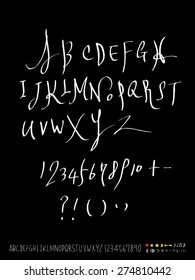 A B C D E F G H
I J K L M N O P Q R S T
U V W X Y Z
1 2 3 4 5 6 7 8 9 10 + -
? ! ( ) . ,
ABCDEFGHIJKLMNOPQRSTUVWXYZ 1234567890
shutterstock.com · 274810442